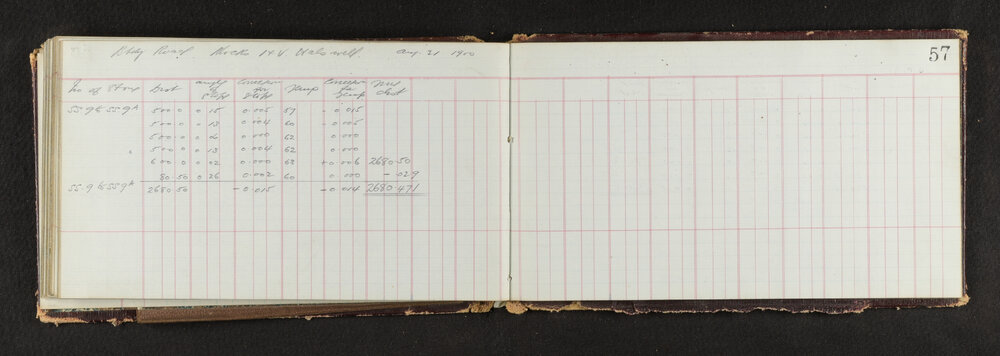 Bdy Road Blocks 14 V Halswell Aug. 21 1900
57
No of Stone Dist angle of Slope Correction for Slope Temp Correction for Temp True dist
SS 9 to SS 9A 500.0 0 15 0.005 57 - 0.015
500.0 0 13 0.004 60 - 0.005
500.0 0 62 0.000
500.0 0 13 0.004 62 0.000
600.0 0 02 0.000 68 +0.006 2680.50
80.50 0 26 0.002 60 0.000 - .029
SS 9 to SS 9A 2680.50 - 0.015 - 0.014 2680.471